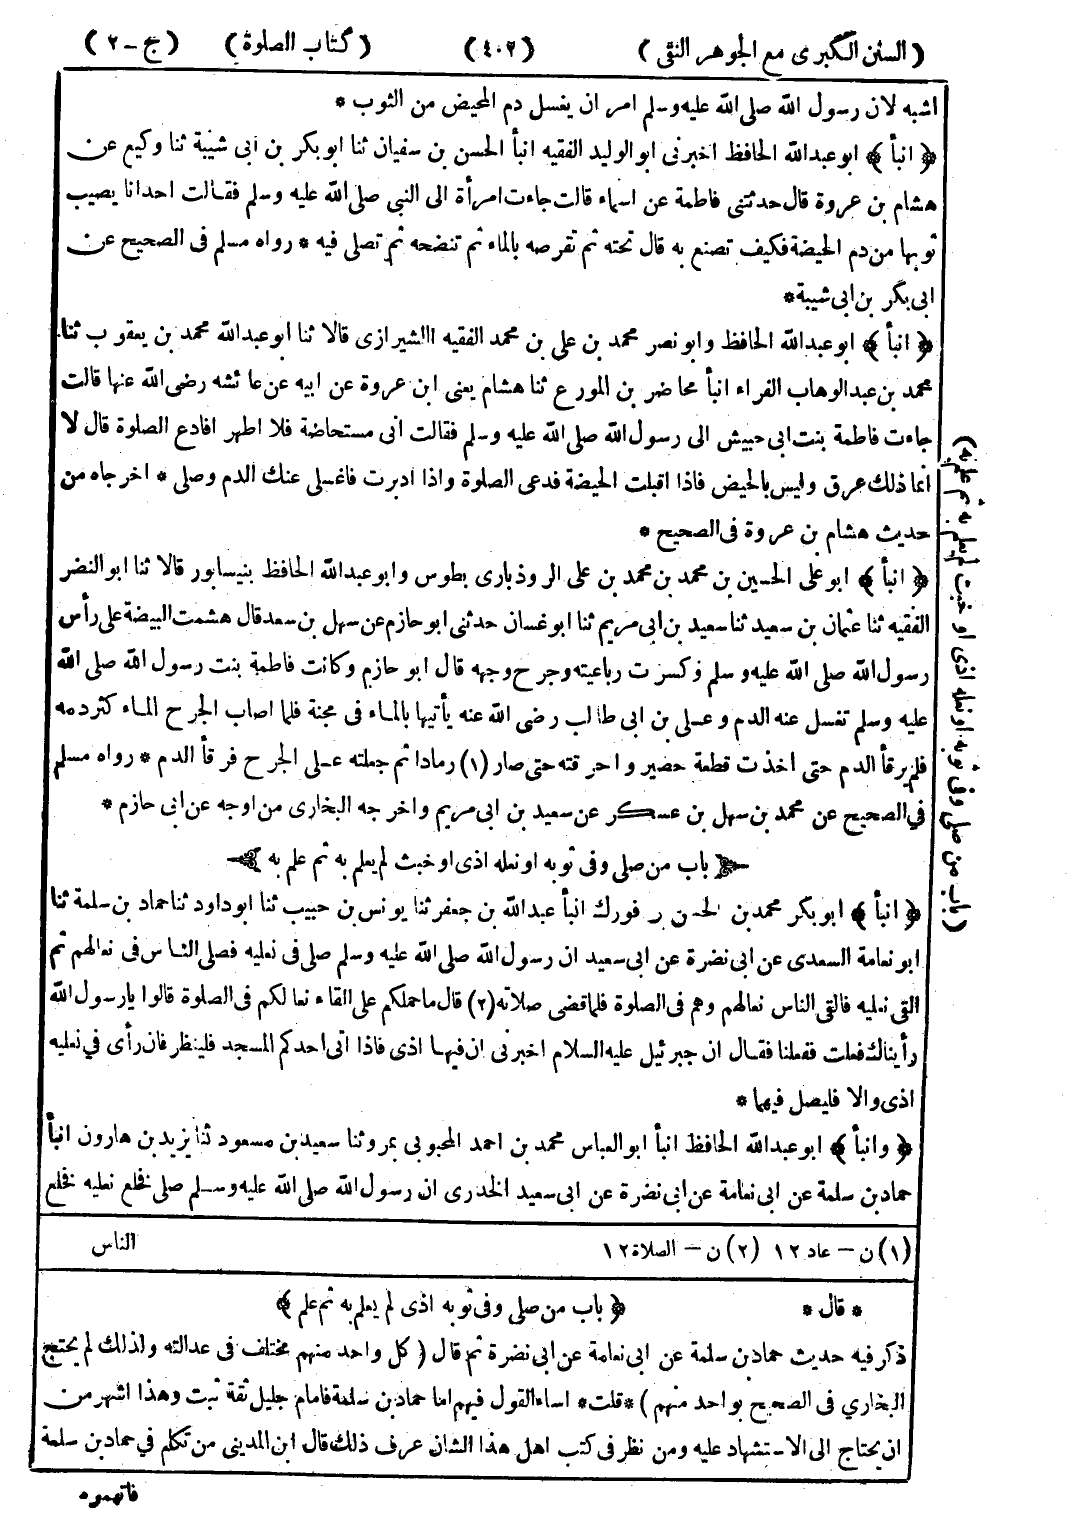 ( السنن الكبرى مع الجوهر النقى ) (٤٠٢) ( كتاب الصلوة ) ( ج - ٢ )
اشبه لان رسول الله صلى الله عليه وسلم امر ان يغسل دم المحيض من الثوب *
﴿ انبأ ﴾ ابو عبدالله الحافظ اخبرنى ابو الوليد الفقيه انبأ الحسن بن سفيان ثنا ابو بكر بن ابى شيبة ثنا وكيع عن
هشام بن عروة قال حدثتنى فاطمة عن اسماء قالت جاءت امرأة الى النبى صلى الله عليه وسلم فقالت احدانا يصيب
ثوبها من دم الحيضة فكيف تصنع به قال تحته ثم تقرصه بالماء ثم تنضحه ثم تصلى فيه * رواه مسلم فى الصحيح عن
ابى بكر بن ابى شيبة *
﴿ انبأ ﴾ ابو عبدالله الحافظ وابو نصر محمد بن على بن محمد الفقيه االشيرازى قالا ثنا ابو عبدالله محمد بن يعقوب ثنا
محمد بن عبدالوهاب الفراء انبأ محاضر بن المورع ثنا هشام يعنى ابن عروة عن ابيه عن عائشه رضى الله عنها قالت
جاءت فاطمة بنت ابى حبيش الى رسول الله صلى الله عليه وسلم فقالت انى مستحاضة فلا اطهر افادع الصلوة قال لا
انما ذلك عرق وليس بالحيض فاذا اقبلت الحيضة فدعى الصلوة واذا ادبرت فاغسلى عنك الدم وصلى * اخرجاه من
حديث هشام بن عروة فى الصحيح *
﴿ انبأ ﴾ ابو على الحسين بن محمد بن محمد بن على الروذبارى بطوس وابو عبدالله الحافظ بنيسابور قالا ثنا ابو النضر
الفقيه ثنا عثمان بن سعيد ثنا سعيد بن ابى مريم ثنا ابو غسان حدثنى ابو حازم عن سهل بن سعد قال هشمت البيضة على رأس
رسول الله صلى الله عليه وسلم وكسرت رباعيته وجرح وجهه قال ابو حازم وكانت فاطمة بنت رسول الله صلى الله
عليه وسلم تغسل عنه الدم وعلى بن ابى طالب رضى الله عنه يأتيها بالماء فى مجنة فلما اصاب الجرح الماء كثر دمه
فلم يرقأ الدم حتى اخذت قطعة حصير واحرقته حتى صار (١) رمادا ثم جعلته على الجرح فرقأ الدم * رواه مسلم
فى الصحيح عن محمد بن سهل بن عسكر عن سعيد بن ابى مريم واخرجه البخارى من اوجه عن ابى حازم *
باب من صلى وفى ثوبه او نعله اذى او خبث لم يعلم به ثم علم به
﴿ انبأ ﴾ ابو بكر محمد بن الحسن بن فورك انبأ عبدالله بن جعفر ثنا يونس بن حبيب ثنا ابو داود ثنا حماد بن سلمة ثنا
ابو نعامة السعدى عن ابى نضرة عن ابى سعيد ان رسول الله صلى الله عليه وسلم صلى فى نعليه فصلى الناس فى نعالهم ثم
القى نعليه فالقى الناس نعالهم وهم فى الصلوة فلما قضى صلاته (٢) قال ما حملكم على القاء نعالكم فى الصلوة قالوا يا رسول الله
رأيناك فعلت ففعلنا فقال ان جبرئيل عليه السلام اخبرنى ان فيهما اذى فاذا اتى احدكم المسجد فلينظر فان رأى فى نعليه
اذى والا فليصل فيهما *
﴿ وانبأ ﴾ ابو عبدالله الحافظ انبأ ابو العباس محمد بن احمد المحبوبى بمرو ثنا سعيد بن مسعود ثنا يزيد بن هارون انبأ
حماد بن سلمة عن ابى نعامة عن ابى نضرة عن ابى سعيد الخدرى ان رسول الله صلى الله عليه وسلم صلى فخلع نعليه فخلع
الناس
(١) ن - عاد ١٢ (٢) ن - الصلاة ١٢
* قال * ﴿ باب من صلى وفى ثوبه اذى لم يعلم به ثم علم ﴾
ذكر فيه حديث حماد بن سلمة عن ابى نعامة عن ابى نضرة ثم قال ( كل واحد منهم مختلف فى عدالته ولذلك لم يحتج
البخاري فى الصحيح بواحد منهم ) * قلت * اساء القول فيهم اما حماد بن سلمة فامام جليل ثقة ثبت وهذا اشهر من
ان يحتاج الى الاستشهاد عليه ومن نظر فى كتب اهل هذا الشان عرف ذلك قال ابن المدينى من تكلم في حماد بن سلمة
فاتهموه
( باب من صلى وفى ثوبه او نعله اذى او خبث لم يعلم به ثم علم به )